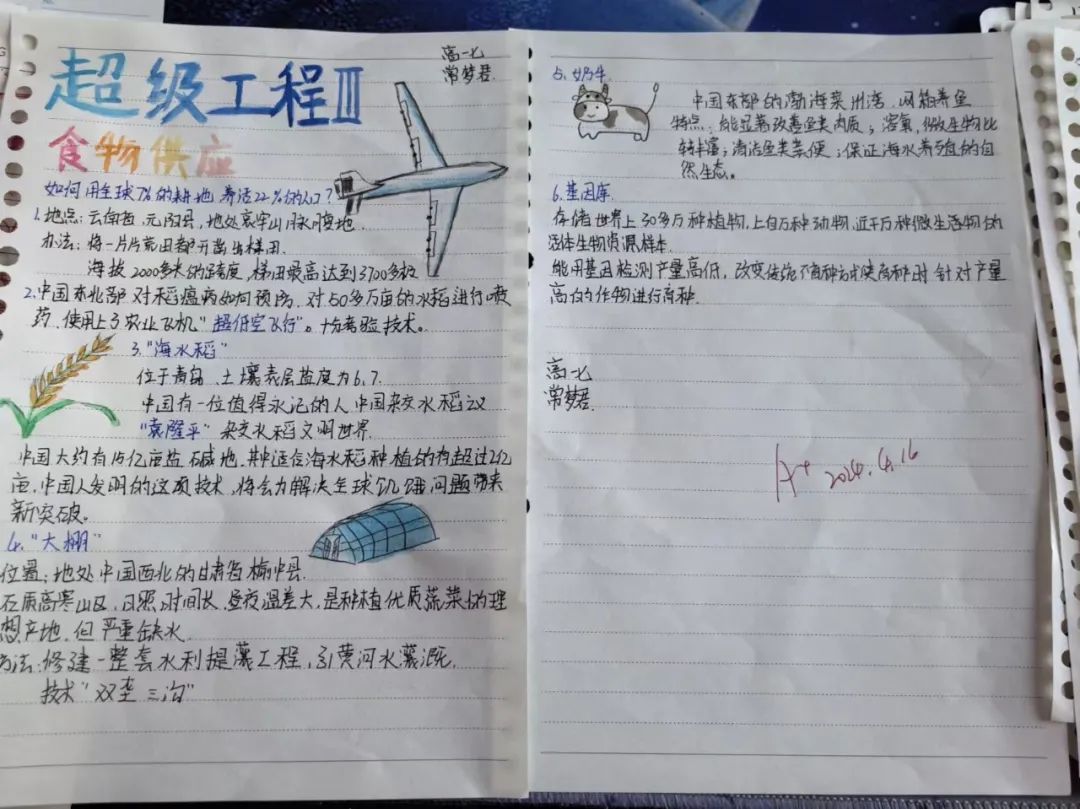 超级工程Ⅲ
高一七
常梦君
食物供应
如何用全球7%的耕地养活22%的人口?
1.地点:云南省,元阳县,地处哀牢山脉腹地.
办法:将一片片荒田都开凿出梯田.
海拔2000多米的高度,梯田最高达到3700多级
2.中国东北部对稻瘟病如何预防,对50多万亩的水稻进行喷
药,使用上了农业飞机"超低空飞行"。十分考验技术。
3."海水稻"
位于青岛,土壤表层盐度为6.7.
中国有一位值得永记的人中国杂交水稻之父
"袁隆平"杂交水稻文明世界.
中国大约有15亿亩盐碱地,其中适合海水稻种植的有超过2亿
亩,中国人发明的这项技术,将会为解决全球饥饿问题带来
新突破。
4."大棚"
位置:地处中国西北的甘肃省榆中县.
高寒山区,日照时间长,昼夜温差大,是种植优质蔬菜的理
想产地,但严重缺水
方法:修建一整套水利提灌工程,引黄河水灌溉.
技术"双垄三沟"
5.奶牛
中国东部的渤海莱州湾,网箱养鱼
特点:能显著改善鱼类肉质;溶氧,微生物比
较丰富;清洁鱼类粪便;保证海水养殖的自
然生态。
6.基因库
存储世界上30多万种植物,上百万种动物,近千万种微生物的
活体生物资源样本.
能用基因检测产量高低,改变传统育种方式使育种时针对产量
高的作物进行育种.
高一七
常梦君
A+ 2024.4.16